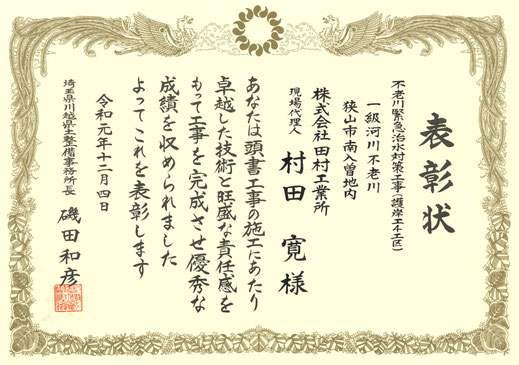 表彰状
不老川緊急治水対策工事(護岸工4工区)
一級河川不老川
狭山市南入曽地内
株式会社田村工業所
現場代理人 村田 寛 様
あなたは頭書工事の施工にあたり
卓越した技術と旺盛な責任感を
もって工事を完成させ優秀な
成績を収められました
よってこれを表彰します
令和元年十二月四日
埼玉県川越県土整備事務所長 磯田和彦